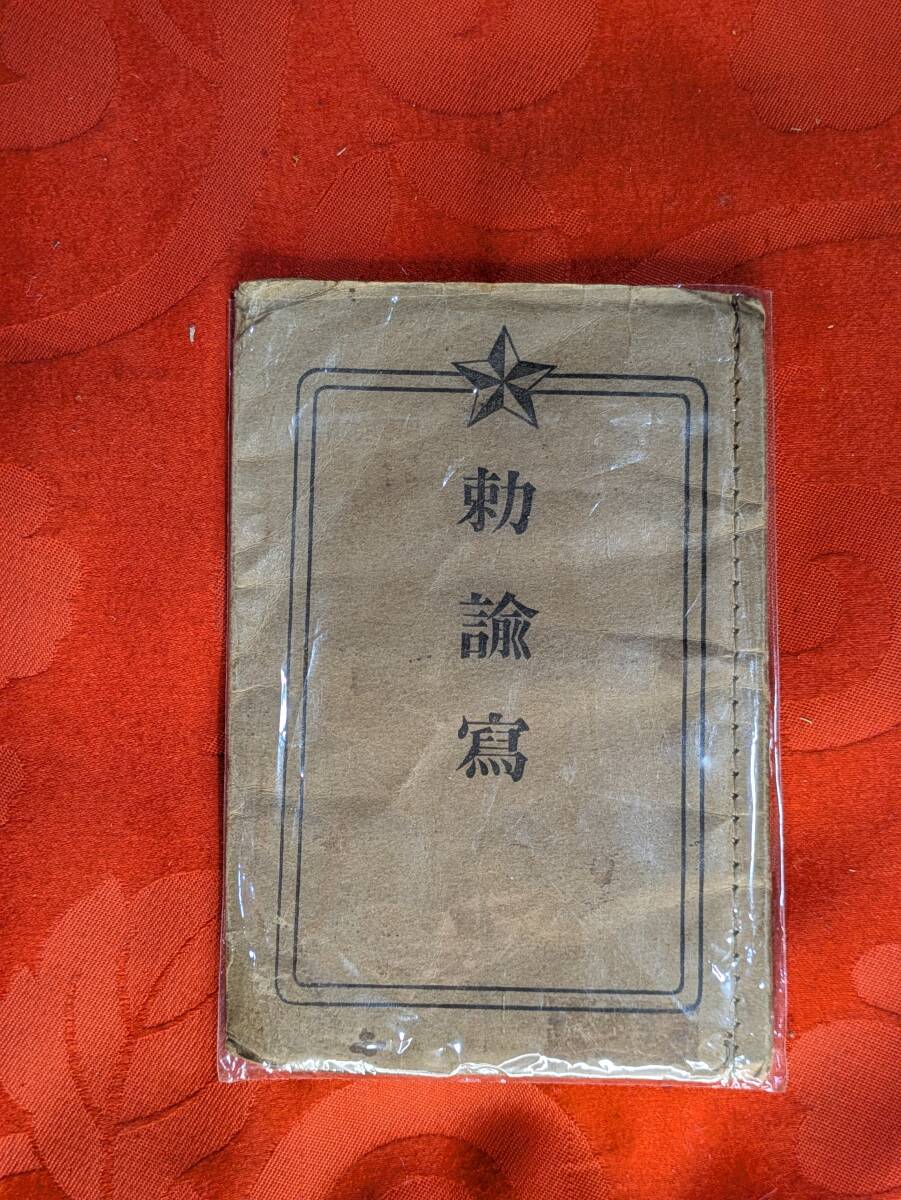 勅諭寫